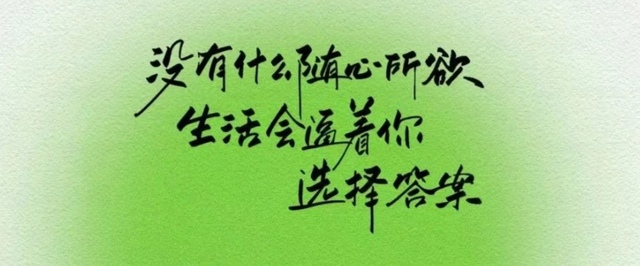 没有什么随心所欲
生活会逼着你
选择答案